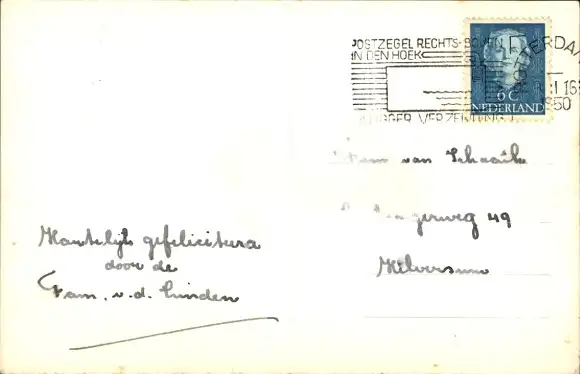 POSTZEGEL RECHTS-BOVEN
IN DEN HOEK
ROTTERDAM
1950
6 C
NEDERLAND
van Schaaik
49
Hilversum
Hartelijk gefeliciteerd
door de
Fam. v.d. Linden